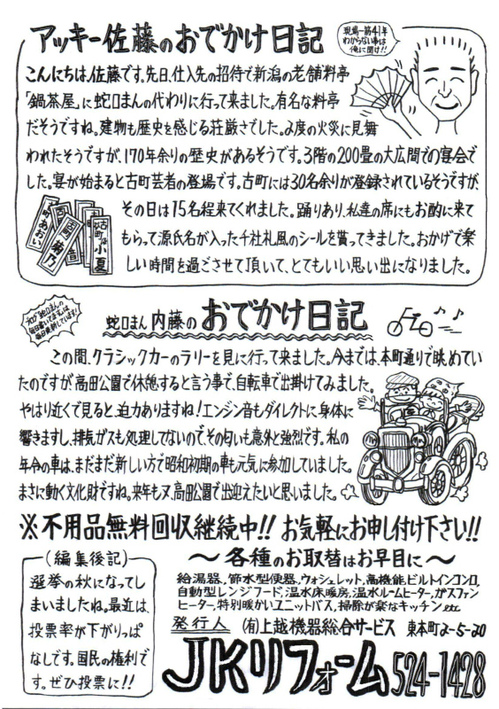 アッキー佐藤のおでかけ日記
現場一筋41年
わからない事は
俺に聞け!!
こんにちは、佐藤です。先日、仕入先の招待で新潟の老舗料亭
「鍋茶屋」に蛇口まんの代わりに行って来ました。有名な料亭
だそうですね。建物も歴史を感じる荘厳さでした。2度の火災に見舞
われたそうですが、170年余りの歴史があるそうです。3階の200畳の大広間での宴会で
した。宴が始まると古町芸者の登場です。古町には30名余りが登録されているそうですが、
その日は15名程来てくれました。踊りあり、私達の席にもお酌に来て
もらって源氏名が入った千社礼風のシールを貰ってきました。おかげで楽
しい時間を過ごさせて頂いて、とてもいい思い出になりました。
古町
小夏
蛇口まん内藤のおでかけ日記
この間、クラシックカーのラリーを見に行って来ました。今までは、本町通りで眺めてい
たのですが高田公園で休憩すると言う事で、自転車で出掛けてみました。
やはり近くで見ると、迫力ありますね!エンジン音もダイレクトに身体に
響きますし、排気ガスも処理してないので、その匂いも意外と強烈です。私の
年令の車は、まだまだ新しい方で昭和初期の車も元気に参加していました。
まさに動く文化財ですね。来年も又、高田公園で出迎えたいと思いました。
※不用品無料回収継続中!! お気軽にお申し付け下さい!!
(編集後記)
選挙の秋になってし
まいましたね。最近は、
投票率が下がりっぱ
なしです。国民の権利で
す。ぜひ投票に!!
～各種のお取替はお早目に～
給湯器、節水型便器、ウォシュレット、高機能ビルトインコンロ、
自動型レンジフード、温水床暖房、温水ルームヒーター、ガスファン
ヒーター、特別暖かいユニットバス、掃除が楽なキッチンetc
発行人 (有)上越機器総合サービス 東本町2-5-20
JKリフォーム 524-1428